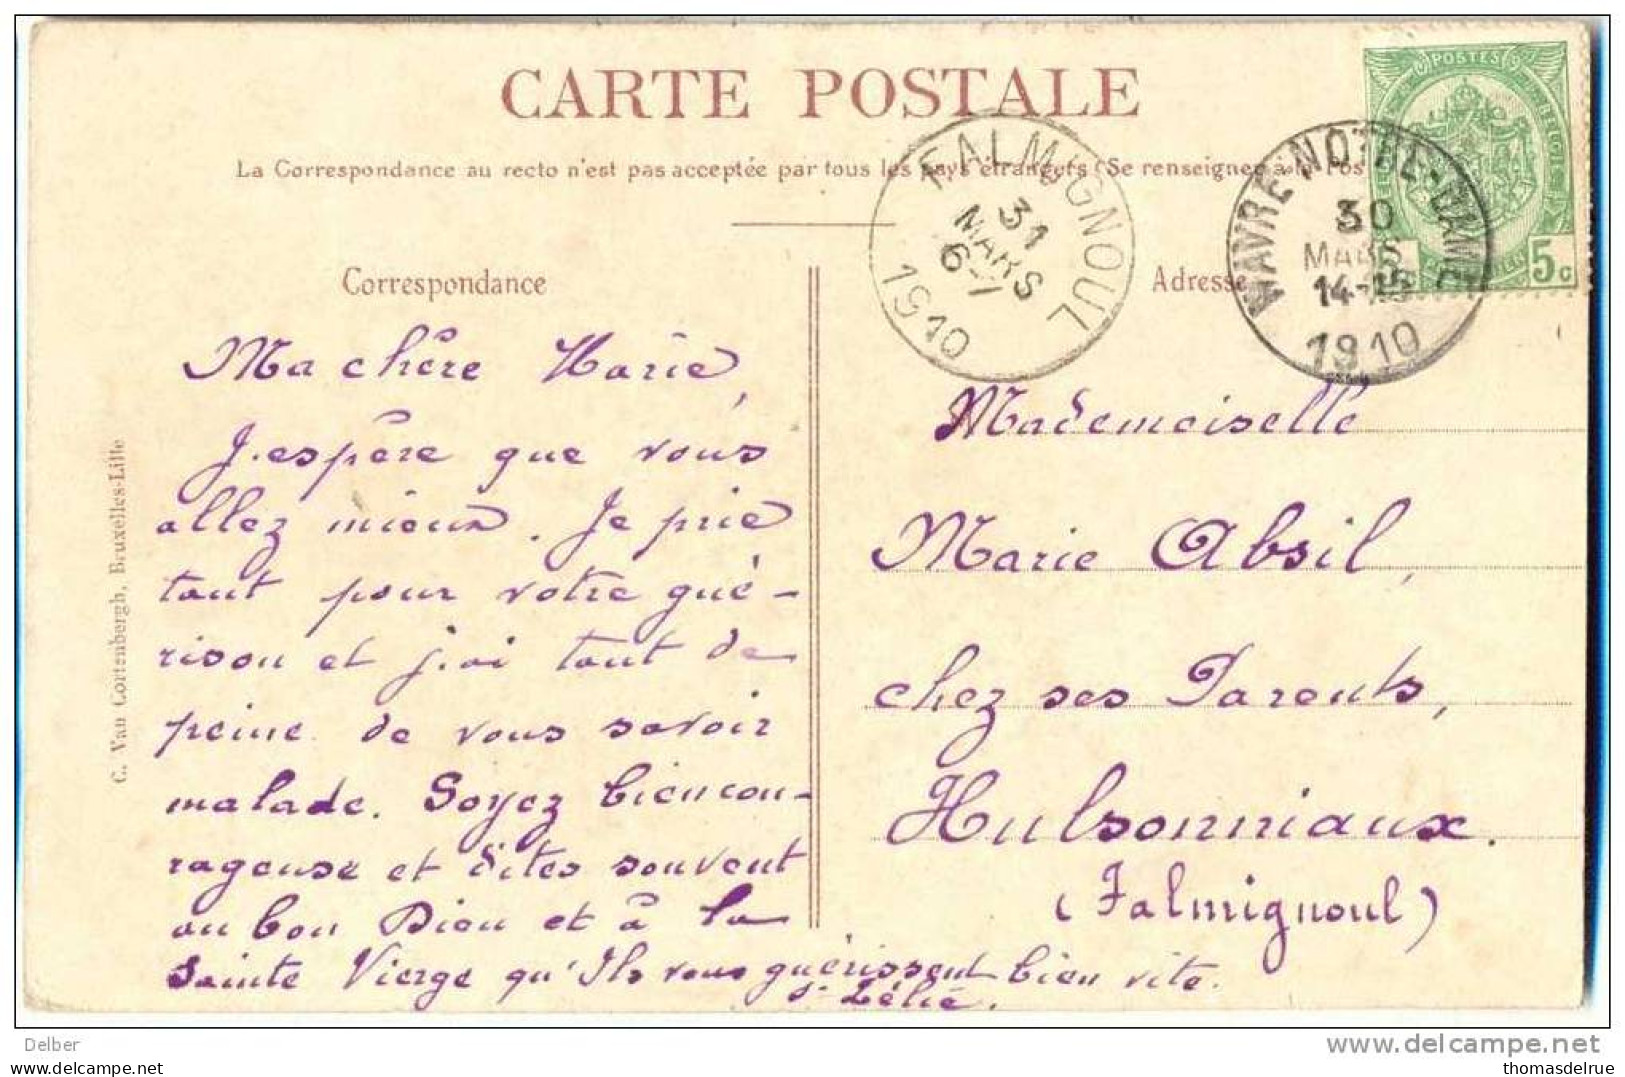 CARTE POSTALE
La Correspondance au recto n'est pas acceptée par tous les pays étrangers (Se renseigner à la Pos
Correspondance
Adresse
FALMIGNOUL
31
MARS
6-7
1910
WAVRE-NOTRE-DAME
30
MARS
14-15
1910
POSTES
5c
Ma chère Marie,
J'espère que vous
allez mieux. Je prie
tant pour votre gué-
rison et j'ai tant de
peine de vous savoir
malade. Soyez biencou-
rageuse et dites souvent
au bon Dieu et à la
Sainte Vierge qu'Ils vous guérissent bien vite.
Sr Lélie.
Mademoiselle
Marie Absil,
chez ses Parents,
Hulsonniaux.
(Falmignoul)
C. Van Cortenbergh, Bruxelles-Lille
Delber
www.delcampe.net
thomasdelrue